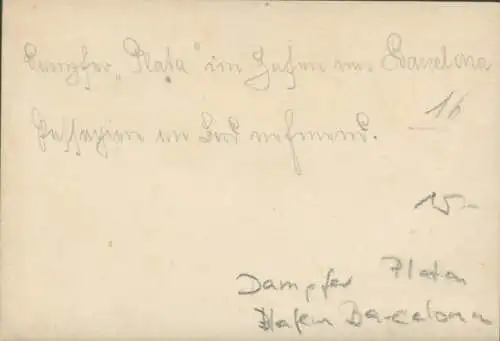 Dampfer „Plata“ im Hafen von Barcelona
16
Passagiere an Bord nehmend.
15.-
Dampfer Plata
Hafen Barcelona